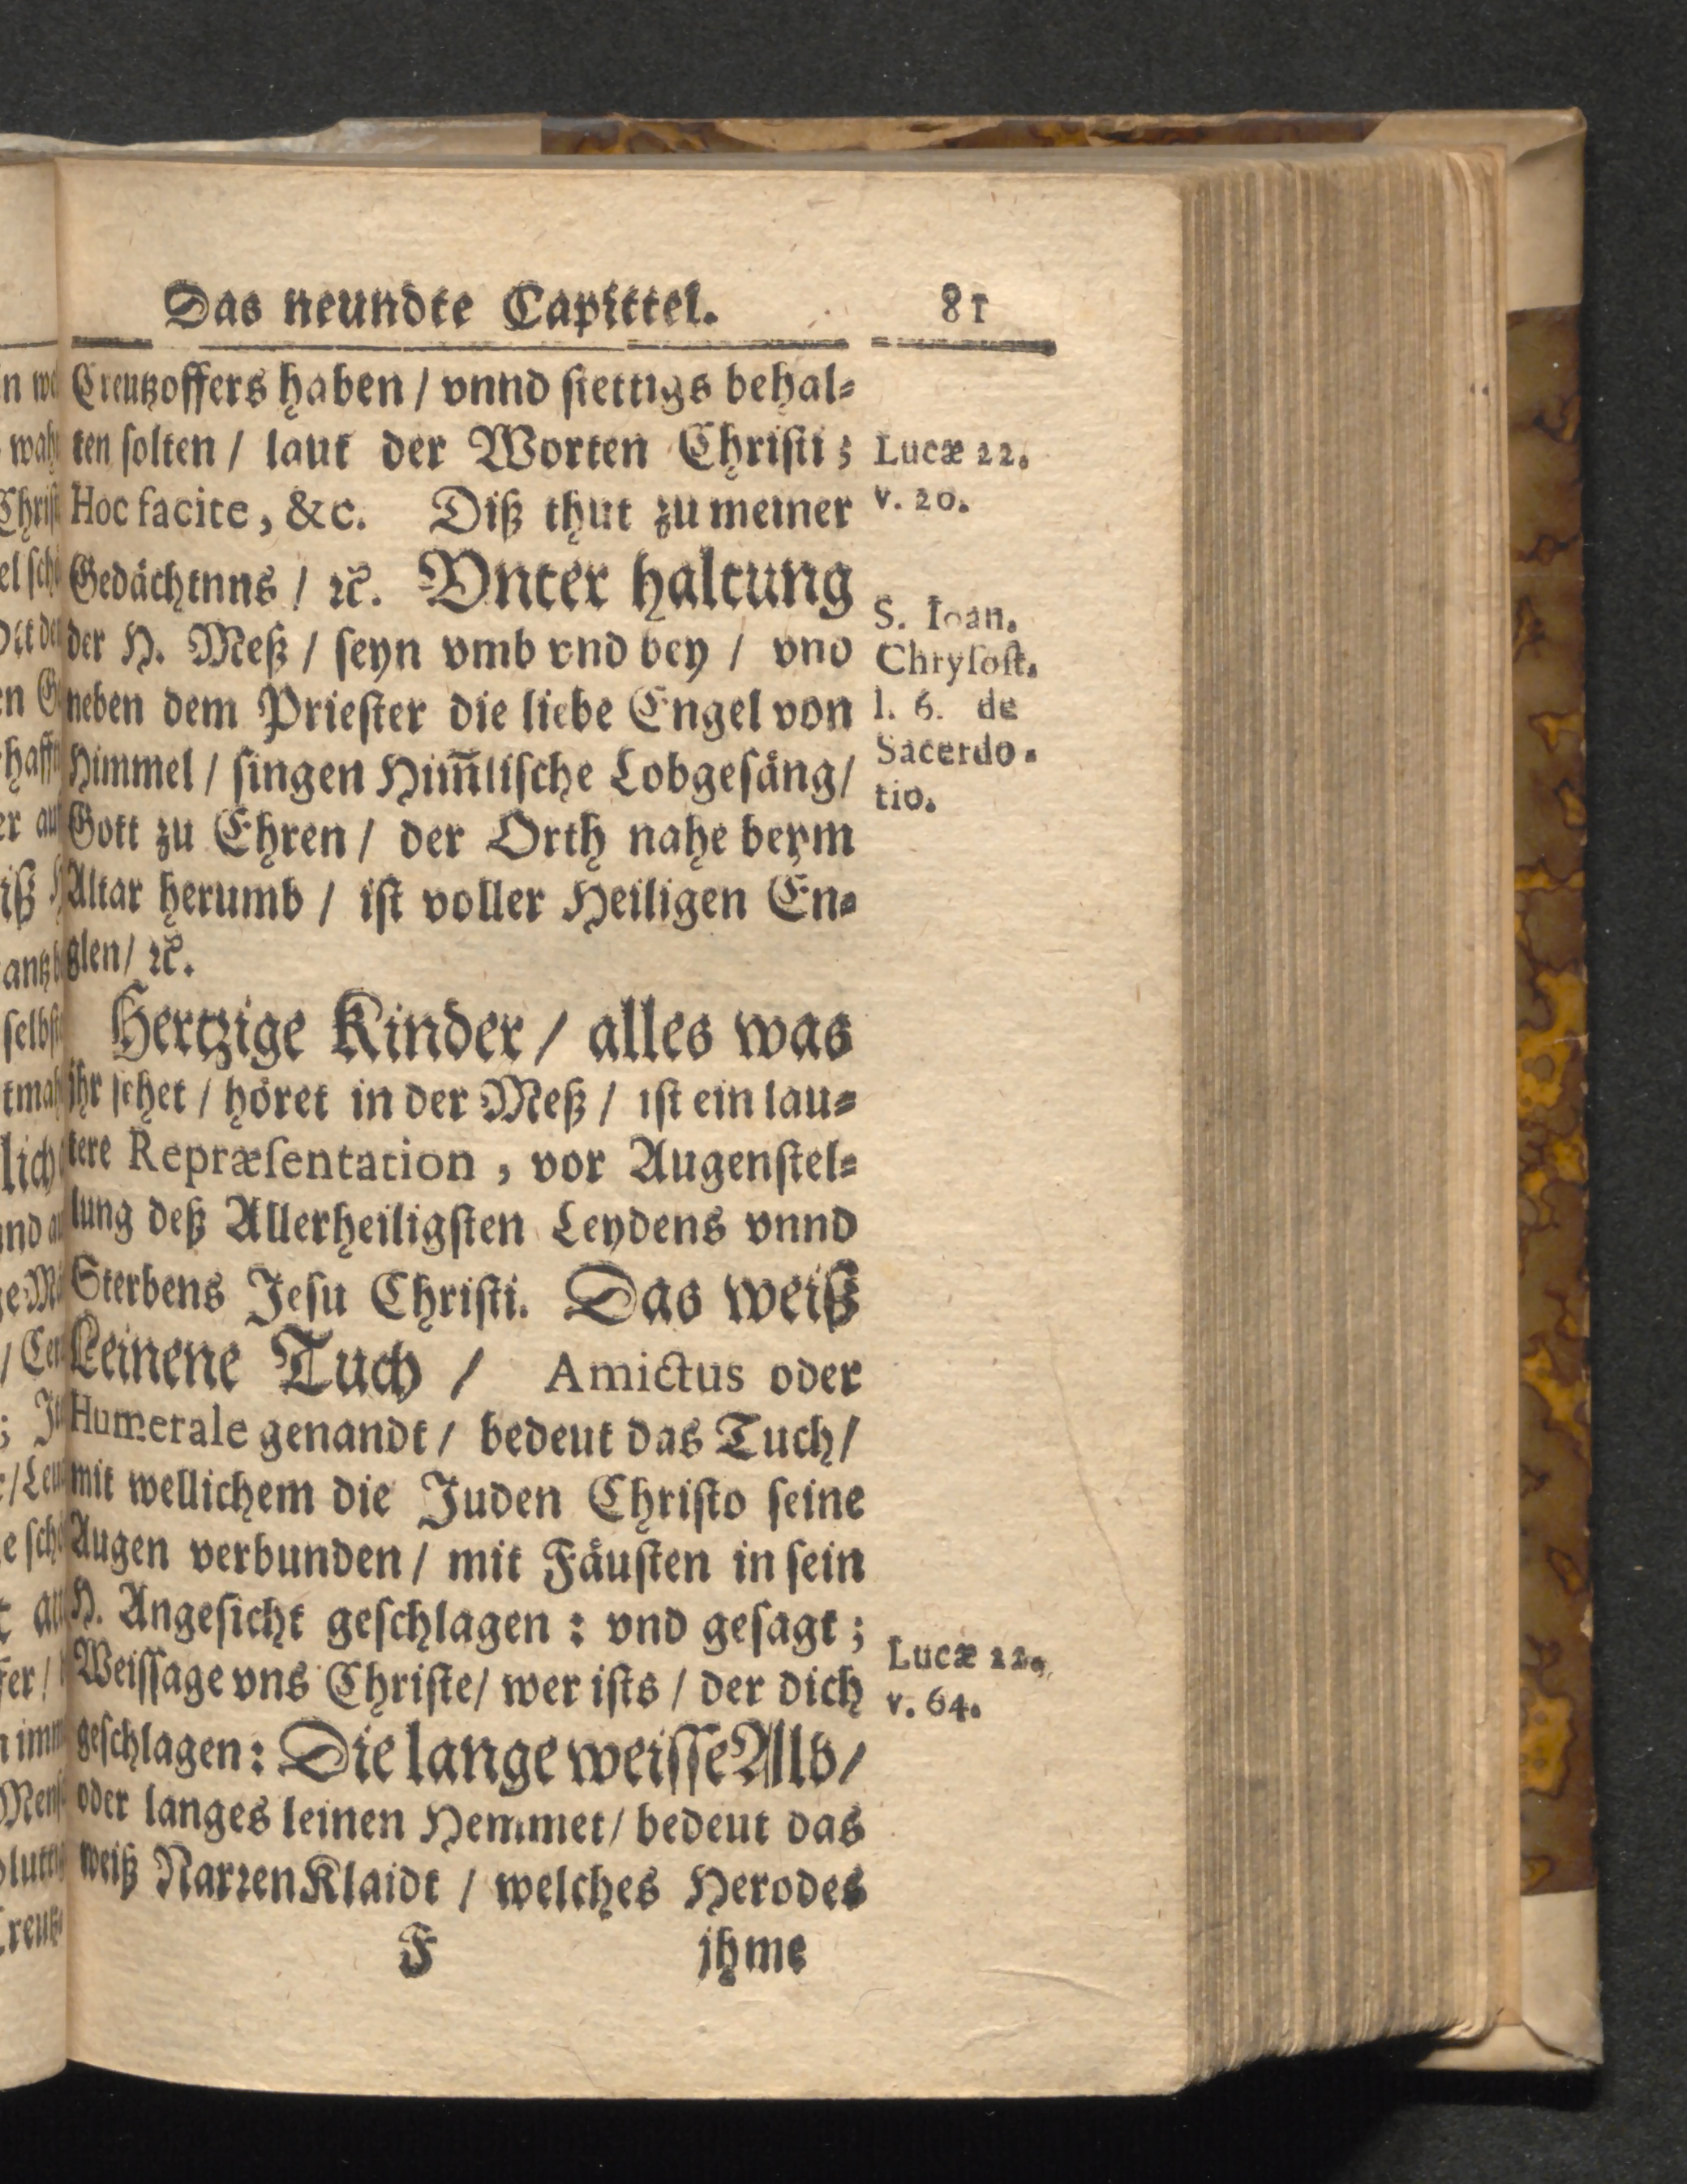 Das neundte Capittel. 81
Creutzoffers haben / vnnd stettigs behal⸗
ten solten / laut der Worten Christi;
Hoc facite, &c. Diß thut zu meiner
Gedächtnns / ꝛc. Vnter haltung
der H. Meß / seyn vmb vnd bey / vnd
neben dem Priester die liebe Engel von
Himmel / singen Him̃lische Lobgesäng/
Gott zu Ehren / der Orth nahe beym
Altar herumb / ist voller Heiligen En⸗
glen/ ꝛc.
Hertzige Kinder / alles was
ihr sehet / höret in der Meß / ist ein lau⸗
tere Repræsentation, vor Augenstel⸗
lung deß Allerheiligsten Leydens vnnd
Sterbens Jesu Christi. Das weiß
Leinene Tuch / Amictus oder
Humerale genandt / bedeut das Tuch/
mit wellichem die Juden Christo seine
Augen verbunden / mit Fäusten in sein
H. Angesicht geschlagen: vnd gesagt;
Weissage vns Christe/ wer ists / der dich
geschlagen: Die lange weisse Alb/
oder langes leinen Hemmet/ bedeut das
weiß NarrenKlaidt / welches Herodes
F ihme
Lucæ 22.
v. 20.
S. Ioan.
Chrysost.
l. 6. de
Sacerdo-
tio.
Lucæ 22.
v. 64.